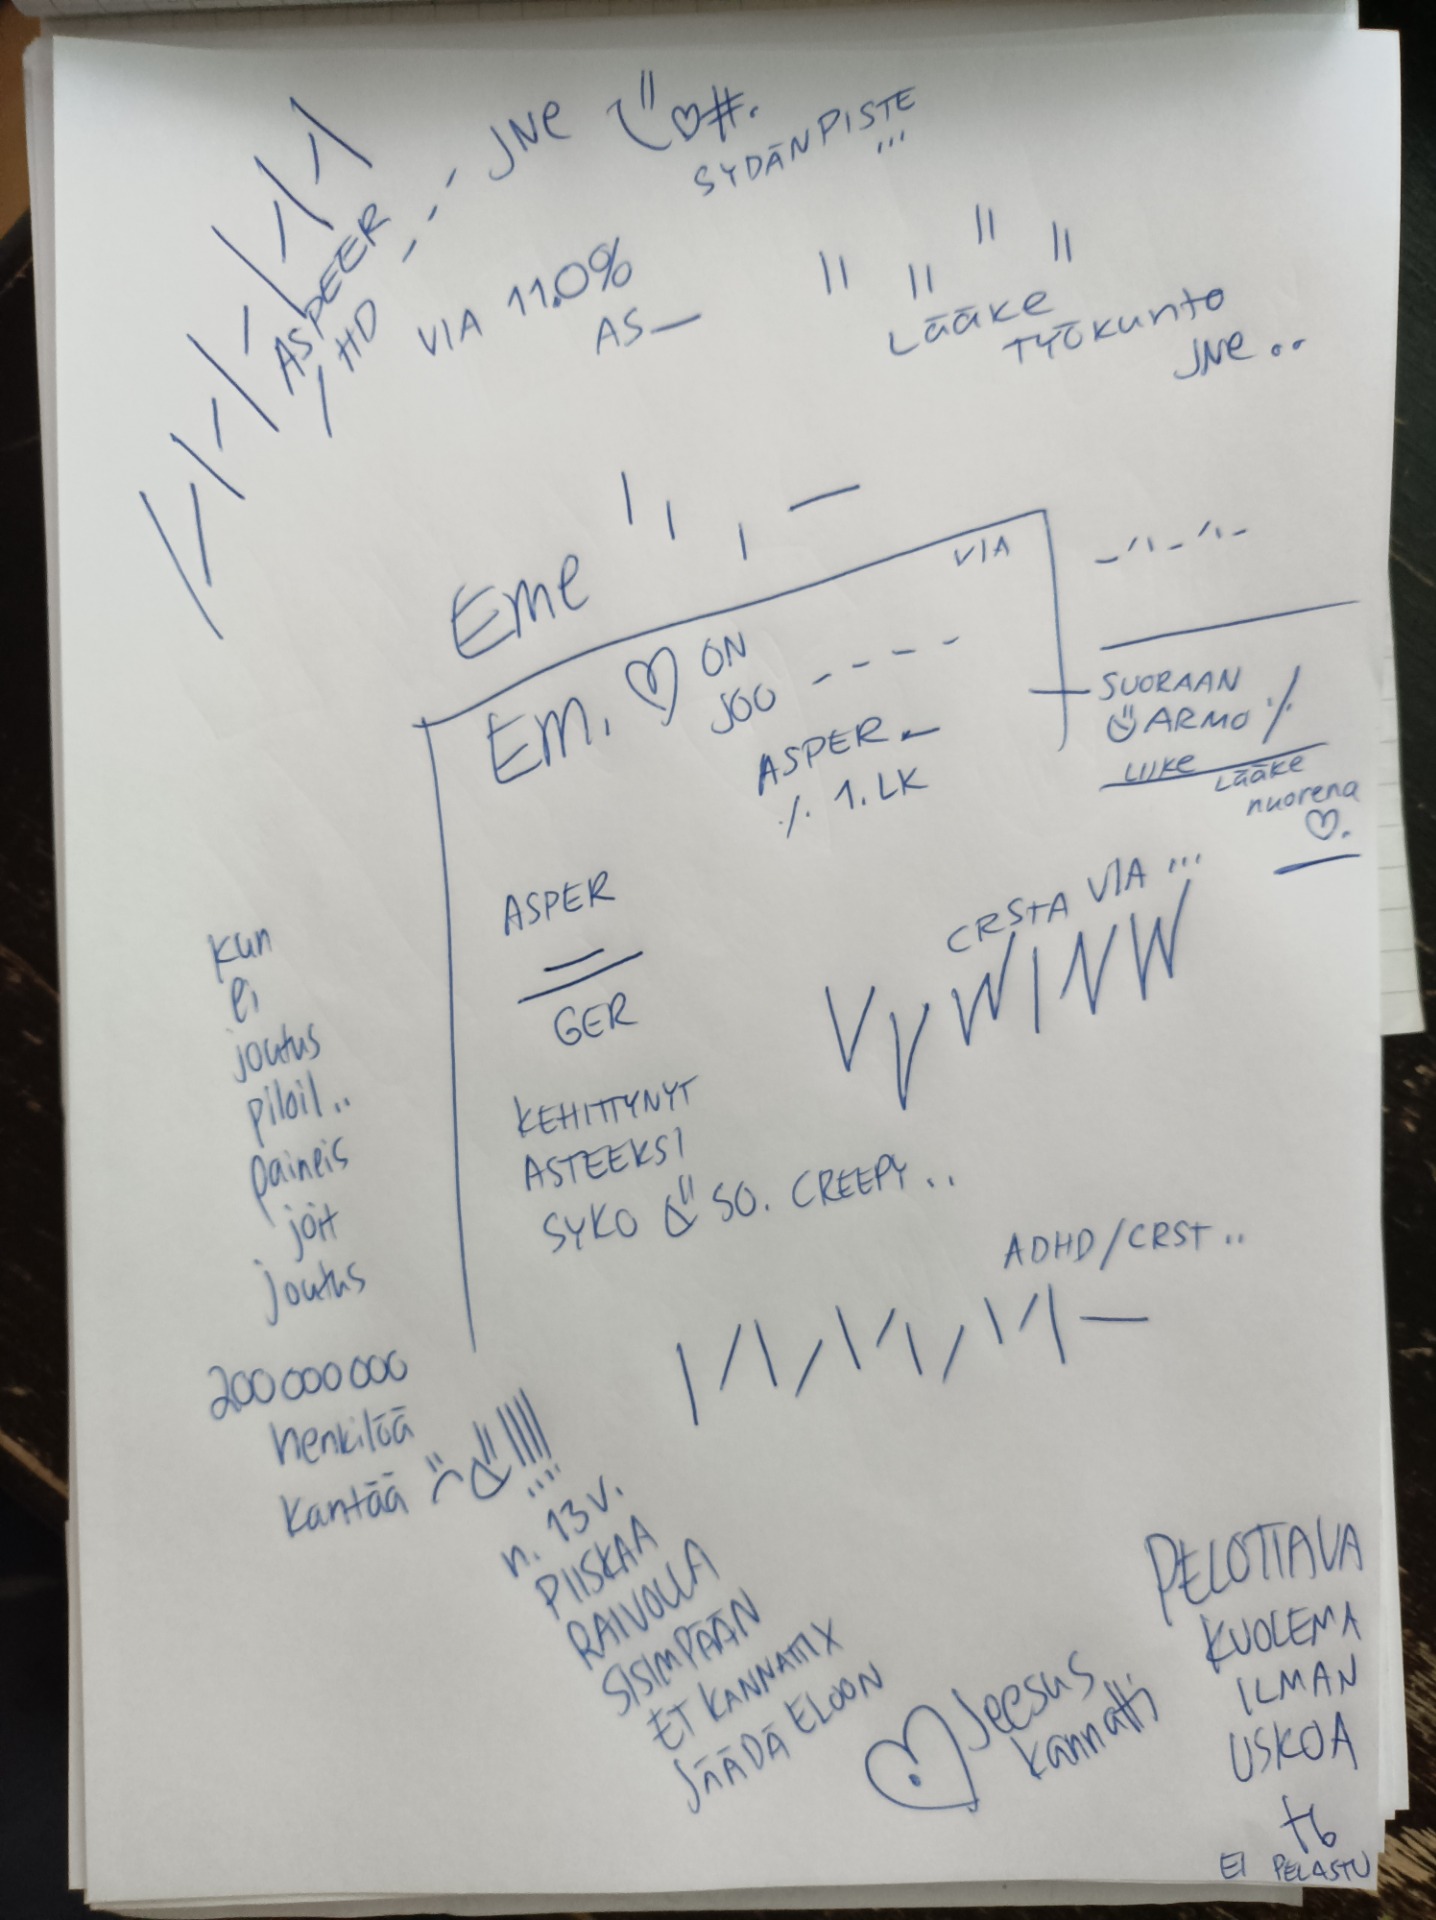 JNE ♡#.
SYDÄNPISTE
...
ASPEER
/HD
VIA 11.0%
AS—
LÄÄKE
TYÖKUNTO
JNE ..
EME
VIA
EM. ♡ ON
JOO - - - -
ASPER –
./. 1. LK
SUORAAN
ARMO ./.
LIIKE
LÄÄKE
nuorena
♡.
ASPER
GER
CRSTA VIA ...
KEHITTYNYT
ASTEEKSI
SYKO SO. CREEPY ..
ADHD/CRST ..
kun
ei
joutus
piloil ..
paineis
joit
joutus
200 000 000
henkilöä
kantää
n. 13 v.
PIISKAA
RAIVOLLA
SISIMPÄÄN
ET KANNATTIX
JÄÄDÄ ELOON
Jeesus
kannatti
PELOTTAVA
KUOLEMA
ILMAN
USKOA
EI PELASTU